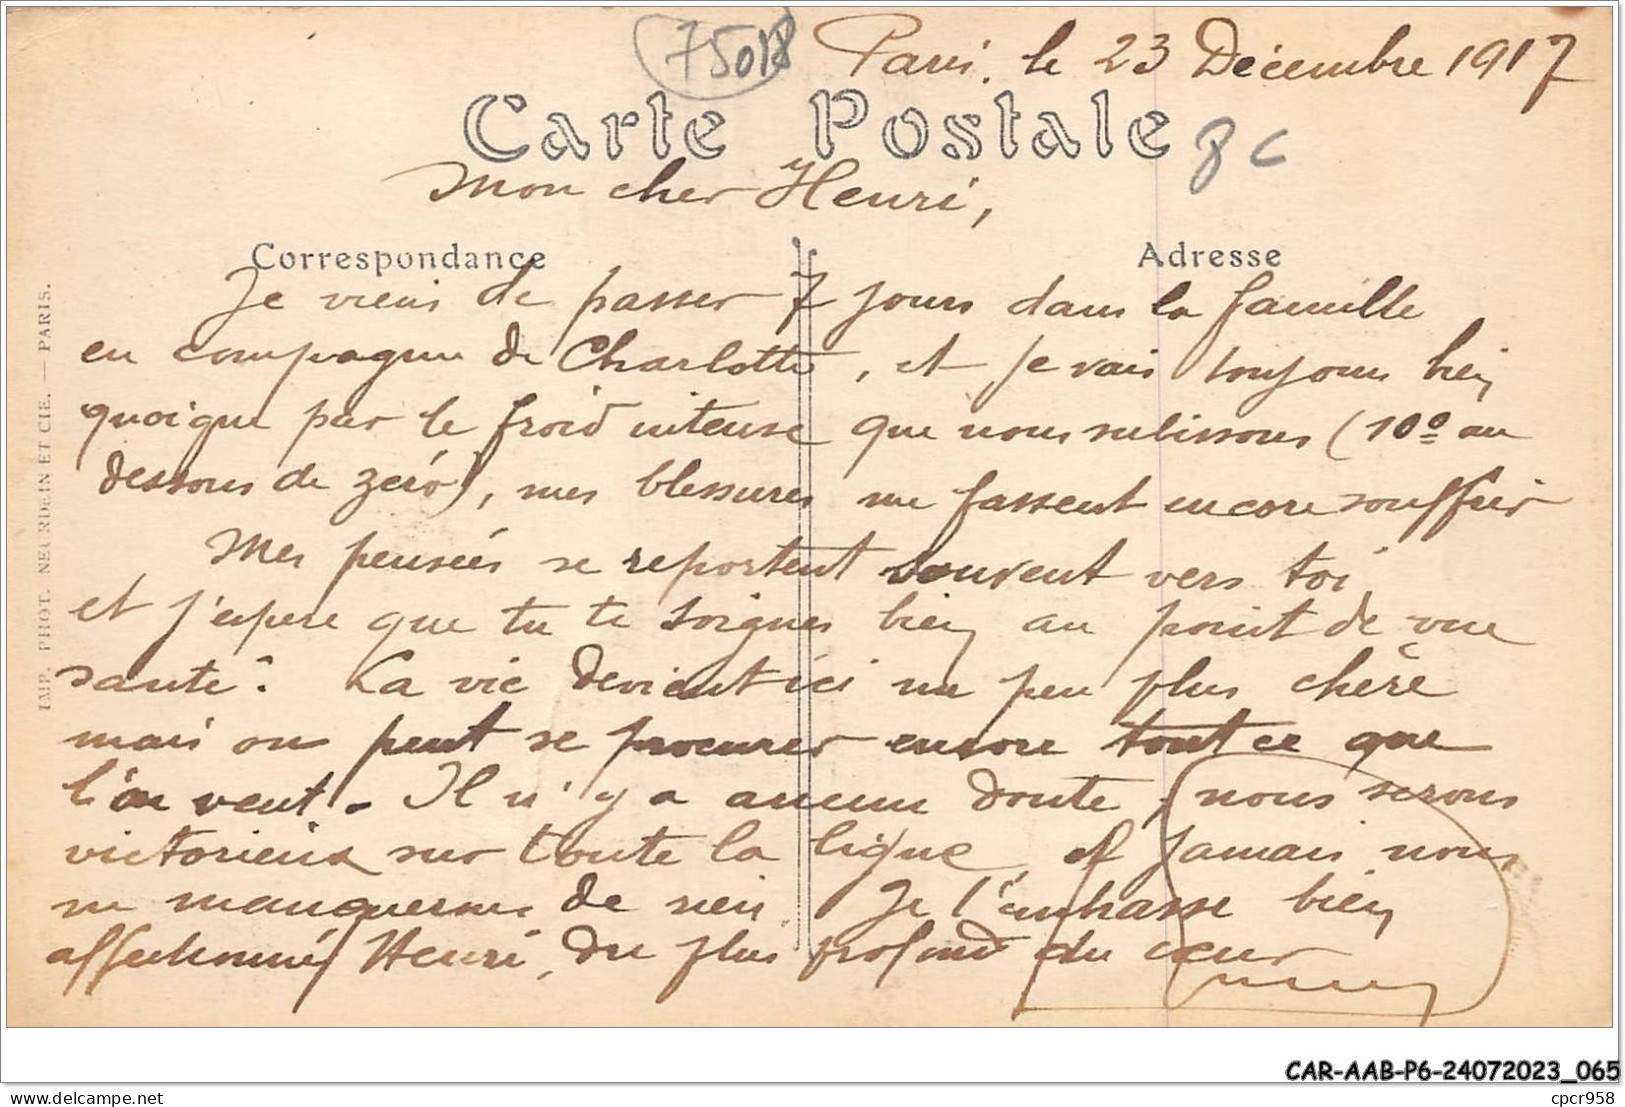 75018
Paris, le 23 Décembre 1917
Carte Postale
Mon cher Henri,
Correspondance Adresse
Je viens de passer 7 jours dans la famille
en compagnie de Charlotte, et je vais toujours bien
quoique par le froid intense que nous subissons (10º au
dessous de zéro), mes blessures me fassent encore souffrir
Mes pensées se reportent souvent vers toi
et j'espère que tu te soignes bien au point de vue
santé. La vie devient ici un peu plus chère
mais on peut se procurer encore tout ce que
l'on veut. Il n'y a aucun doute, nous serons
victorieux sur toute la ligne, et jamais nous
ne manquerons de rien. Je t'embrasse bien
affectionné Henri, du plus profond du cœur
IMP. PHOT. NEURDEIN ET CIE. — PARIS.
CAR-AAB-P6-24072023_065
delcampe.net
cpcr958